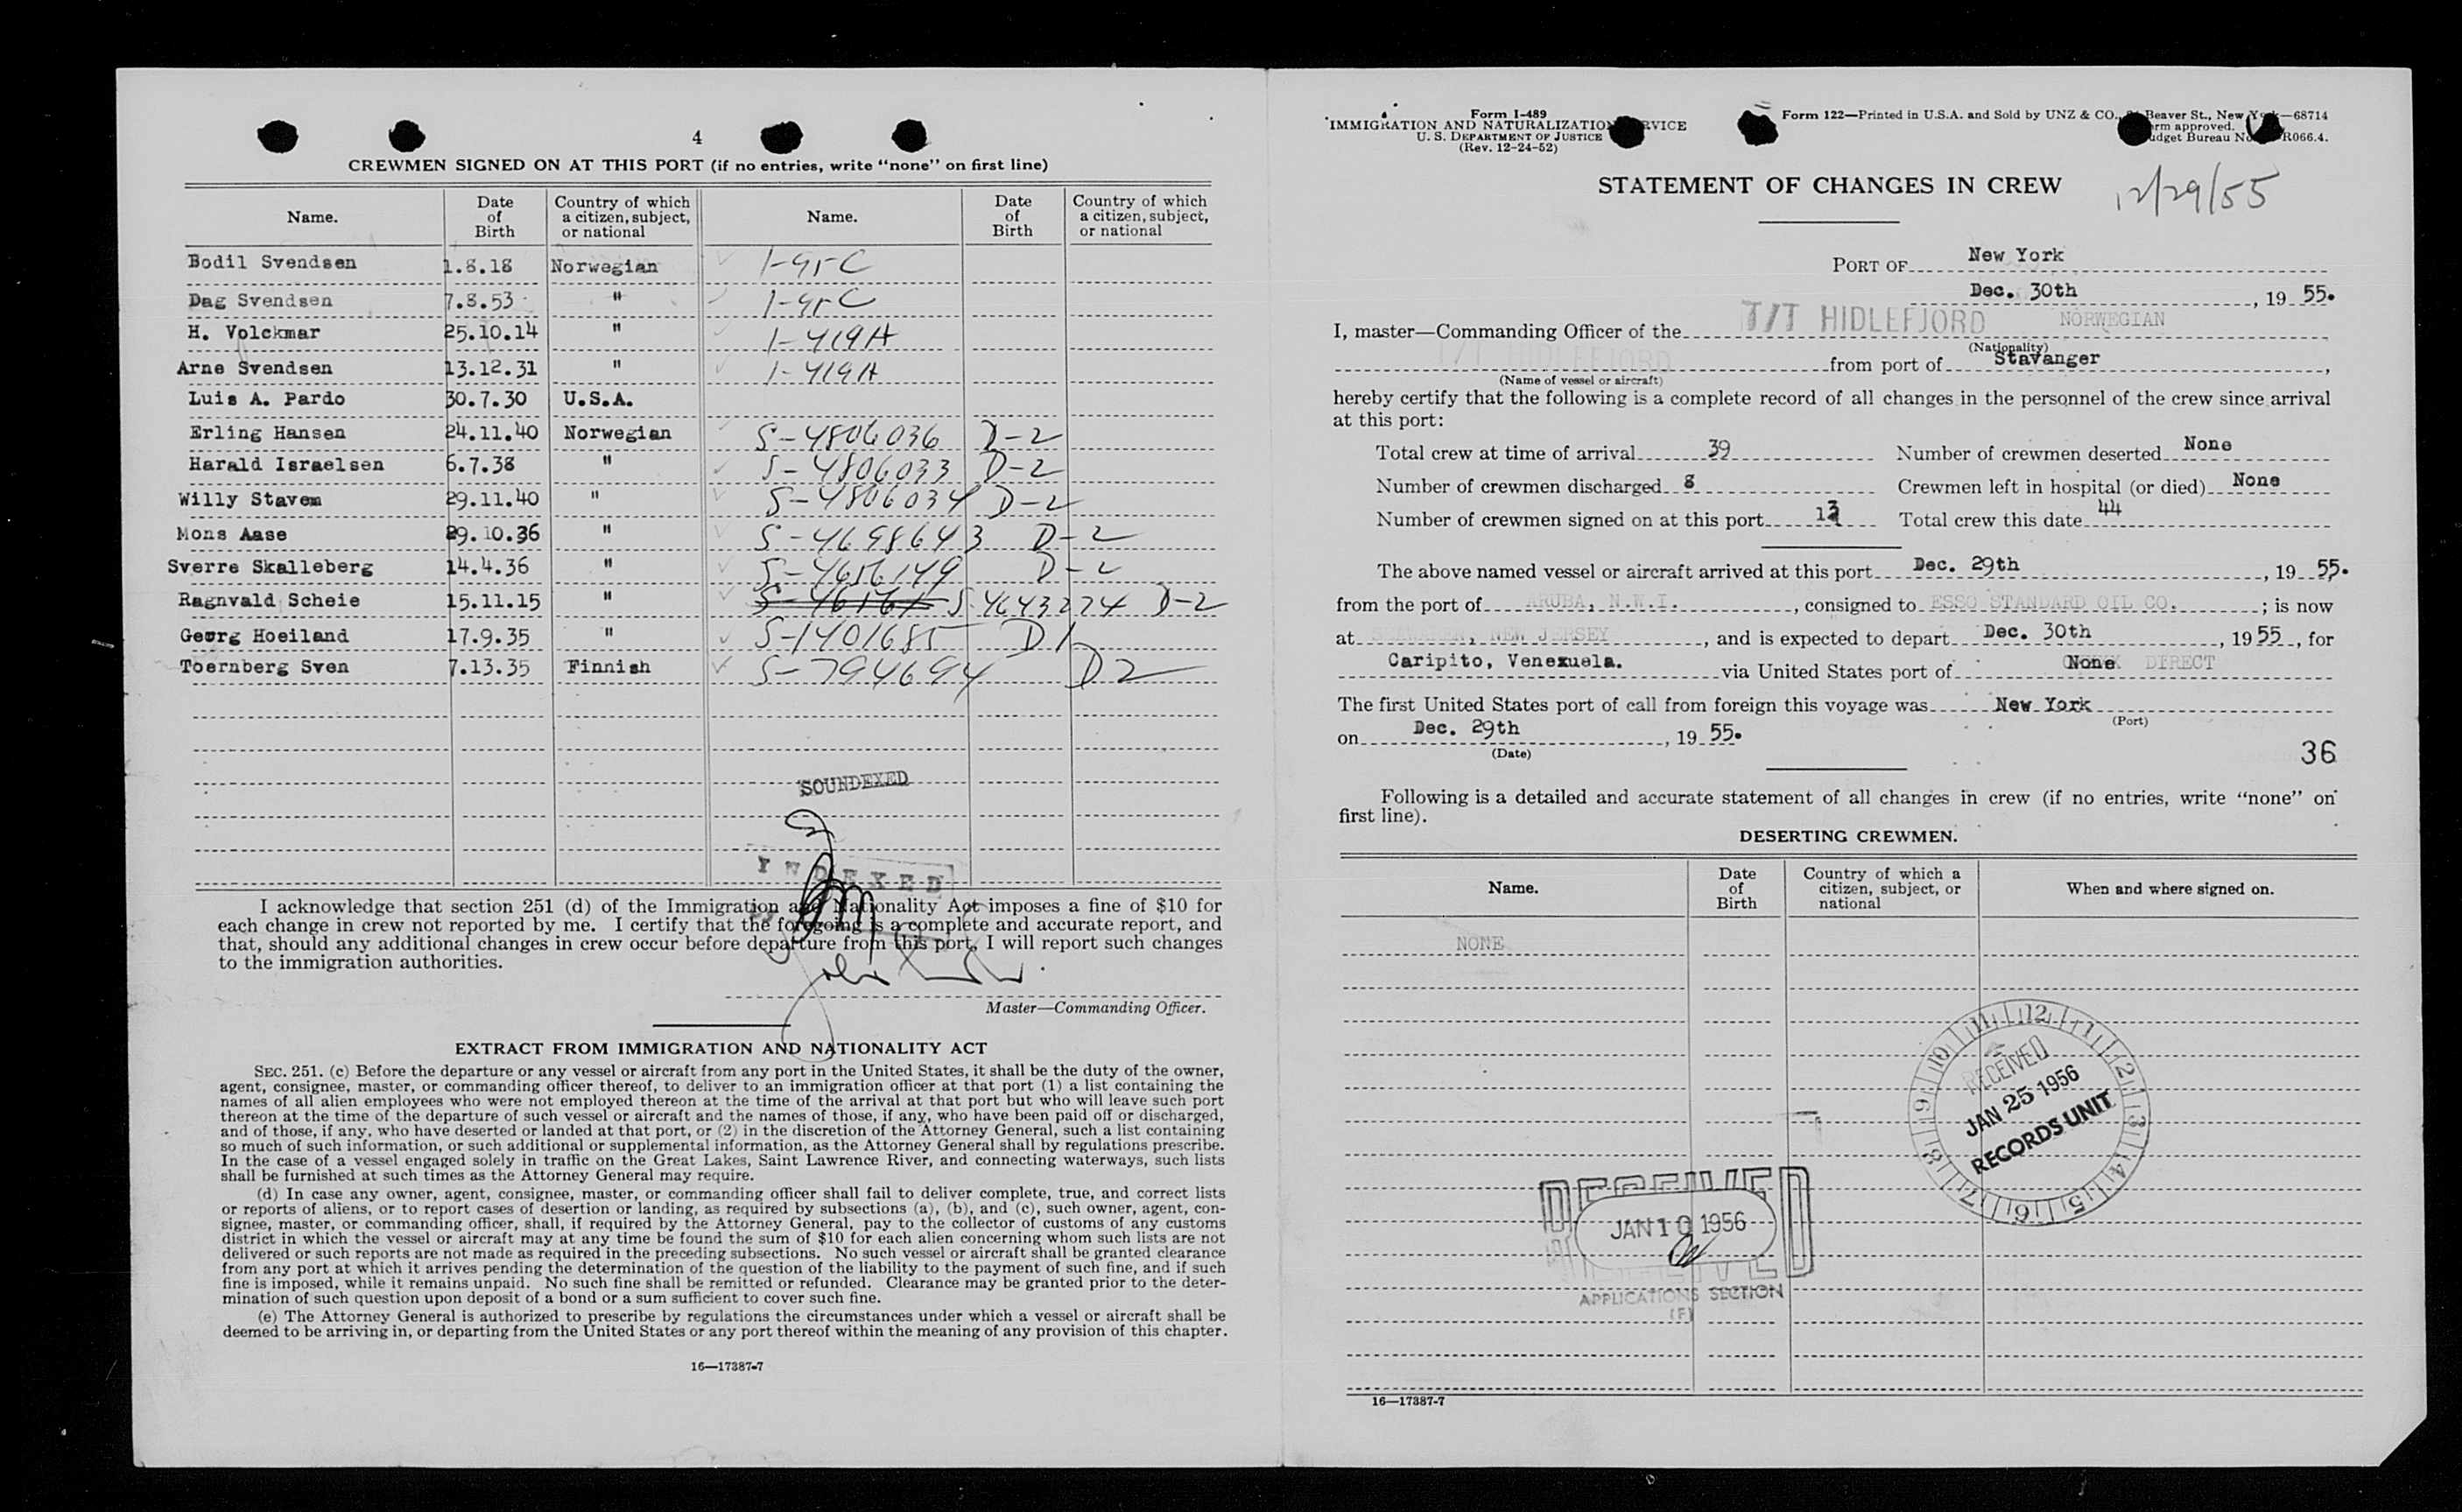 4
CREWMEN SIGNED ON AT THIS PORT (if no entries, write “none” on first line)
Name. Date of Birth Country of which a citizen, subject, or national Name. Date of Birth Country of which a citizen, subject, or national
Bodil Svendsen 1.8.18 Norwegian 1-95-C
Dag Svendsen 7.8.53 " 1-95-C
H. Volckmar 25.10.14 " 1-419A
Arne Svendsen 13.12.31 " 1-419A
Luis A. Pardo 30.7.30 U.S.A.
Erling Hansen 24.11.40 Norwegian S-4806036 D-2
Harald Israelsen 6.7.38 " S-4806033 D-2
Willy Stavem 29.11.40 " S-4806034 D-2
Mons Aase 29.10.36 " S-4698643 D-2
Sverre Skalleberg 14.4.36 " S-4656149 D-2
Ragnvald Scheie 15.11.15 " S 4643274 D-2
Georg Hoeiland 17.9.35 " S-1401685 D1
Toernberg Sven 7.13.35 Finnish S-794694 D2
SOUNDEXED
INDEXED
I acknowledge that section 251 (d) of the Immigration and Nationality Act imposes a fine of $10 for
each change in crew not reported by me. I certify that the foregoing is a complete and accurate report, and
that, should any additional changes in crew occur before departure from this port, I will report such changes
to the immigration authorities.
Master—Commanding Officer.
EXTRACT FROM IMMIGRATION AND NATIONALITY ACT
SEC. 251. (c) Before the departure or any vessel or aircraft from any port in the United States, it shall be the duty of the owner,
agent, consignee, master, or commanding officer thereof, to deliver to an immigration officer at that port (1) a list containing the
names of all alien employees who were not employed thereon at the time of the arrival at that port but who will leave such port
thereon at the time of the departure of such vessel or aircraft and the names of those, if any, who have been paid off or discharged,
and of those, if any, who have deserted or landed at that port, or (2) in the discretion of the Attorney General, such a list containing
so much of such information, or such additional or supplemental information, as the Attorney General shall by regulations prescribe.
In the case of a vessel engaged solely in traffic on the Great Lakes, Saint Lawrence River, and connecting waterways, such lists
shall be furnished at such times as the Attorney General may require.
(d) In case any owner, agent, consignee, master, or commanding officer shall fail to deliver complete, true, and correct lists
or reports of aliens, or to report cases of desertion or landing, as required by subsections (a), (b), and (c), such owner, agent, con-
signee, master, or commanding officer, shall, if required by the Attorney General, pay to the collector of customs of any customs
district in which the vessel or aircraft may at any time be found the sum of $10 for each alien concerning whom such lists are not
delivered or such reports are not made as required in the preceding subsections. No such vessel or aircraft shall be granted clearance
from any port at which it arrives pending the determination of the question of the liability to the payment of such fine, and if such
fine is imposed, while it remains unpaid. No such fine shall be remitted or refunded. Clearance may be granted prior to the deter-
mination of such question upon deposit of a bond or a sum sufficient to cover such fine.
(e) The Attorney General is authorized to prescribe by regulations the circumstances under which a vessel or aircraft shall be
deemed to be arriving in, or departing from the United States or any port thereof within the meaning of any provision of this chapter.
16—17387-7
Form I-489
IMMIGRATION AND NATURALIZATION SERVICE
U. S. DEPARTMENT OF JUSTICE
(Rev. 12-24-52)
Form 122—Printed in U.S.A. and Sold by UNZ & CO., Beaver St., New York—68714
Form approved.
Budget Bureau No. R066.4.
STATEMENT OF CHANGES IN CREW
12/29/55
PORT OF New York
Dec. 30th, 19 55.
I, master—Commanding Officer of the T/T HIDLEFJORD NORWEGIAN
(Nationality)
T/T HIDLEFJORD from port of Stavanger,
(Name of vessel or aircraft)
hereby certify that the following is a complete record of all changes in the personnel of the crew since arrival
at this port:
Total crew at time of arrival 39 Number of crewmen deserted None
Number of crewmen discharged 8 Crewmen left in hospital (or died) None
Number of crewmen signed on at this port 13 Total crew this date 44
The above named vessel or aircraft arrived at this port Dec. 29th, 19 55.
from the port of ARUBA, N.W.I., consigned to ESSO STANDARD OIL CO.; is now
at NEW JERSEY, and is expected to depart Dec. 30th, 19 55, for
Caripito, Venexuela. via United States port of None DIRECT
The first United States port of call from foreign this voyage was New York
(Port)
on Dec. 29th, 19 55.
(Date)
36
Following is a detailed and accurate statement of all changes in crew (if no entries, write “none” on
first line).
DESERTING CREWMEN.
Name. Date of Birth Country of which a citizen, subject, or national When and where signed on.
NONE
12 1 2 3 4 5 6 7 8 9 10 11
RECEIVED
JAN 25 1956
RECORDS UNIT
RECEIVED
JAN 10 1956
APPLICATIONS SECTION
(F)
16—17387-7